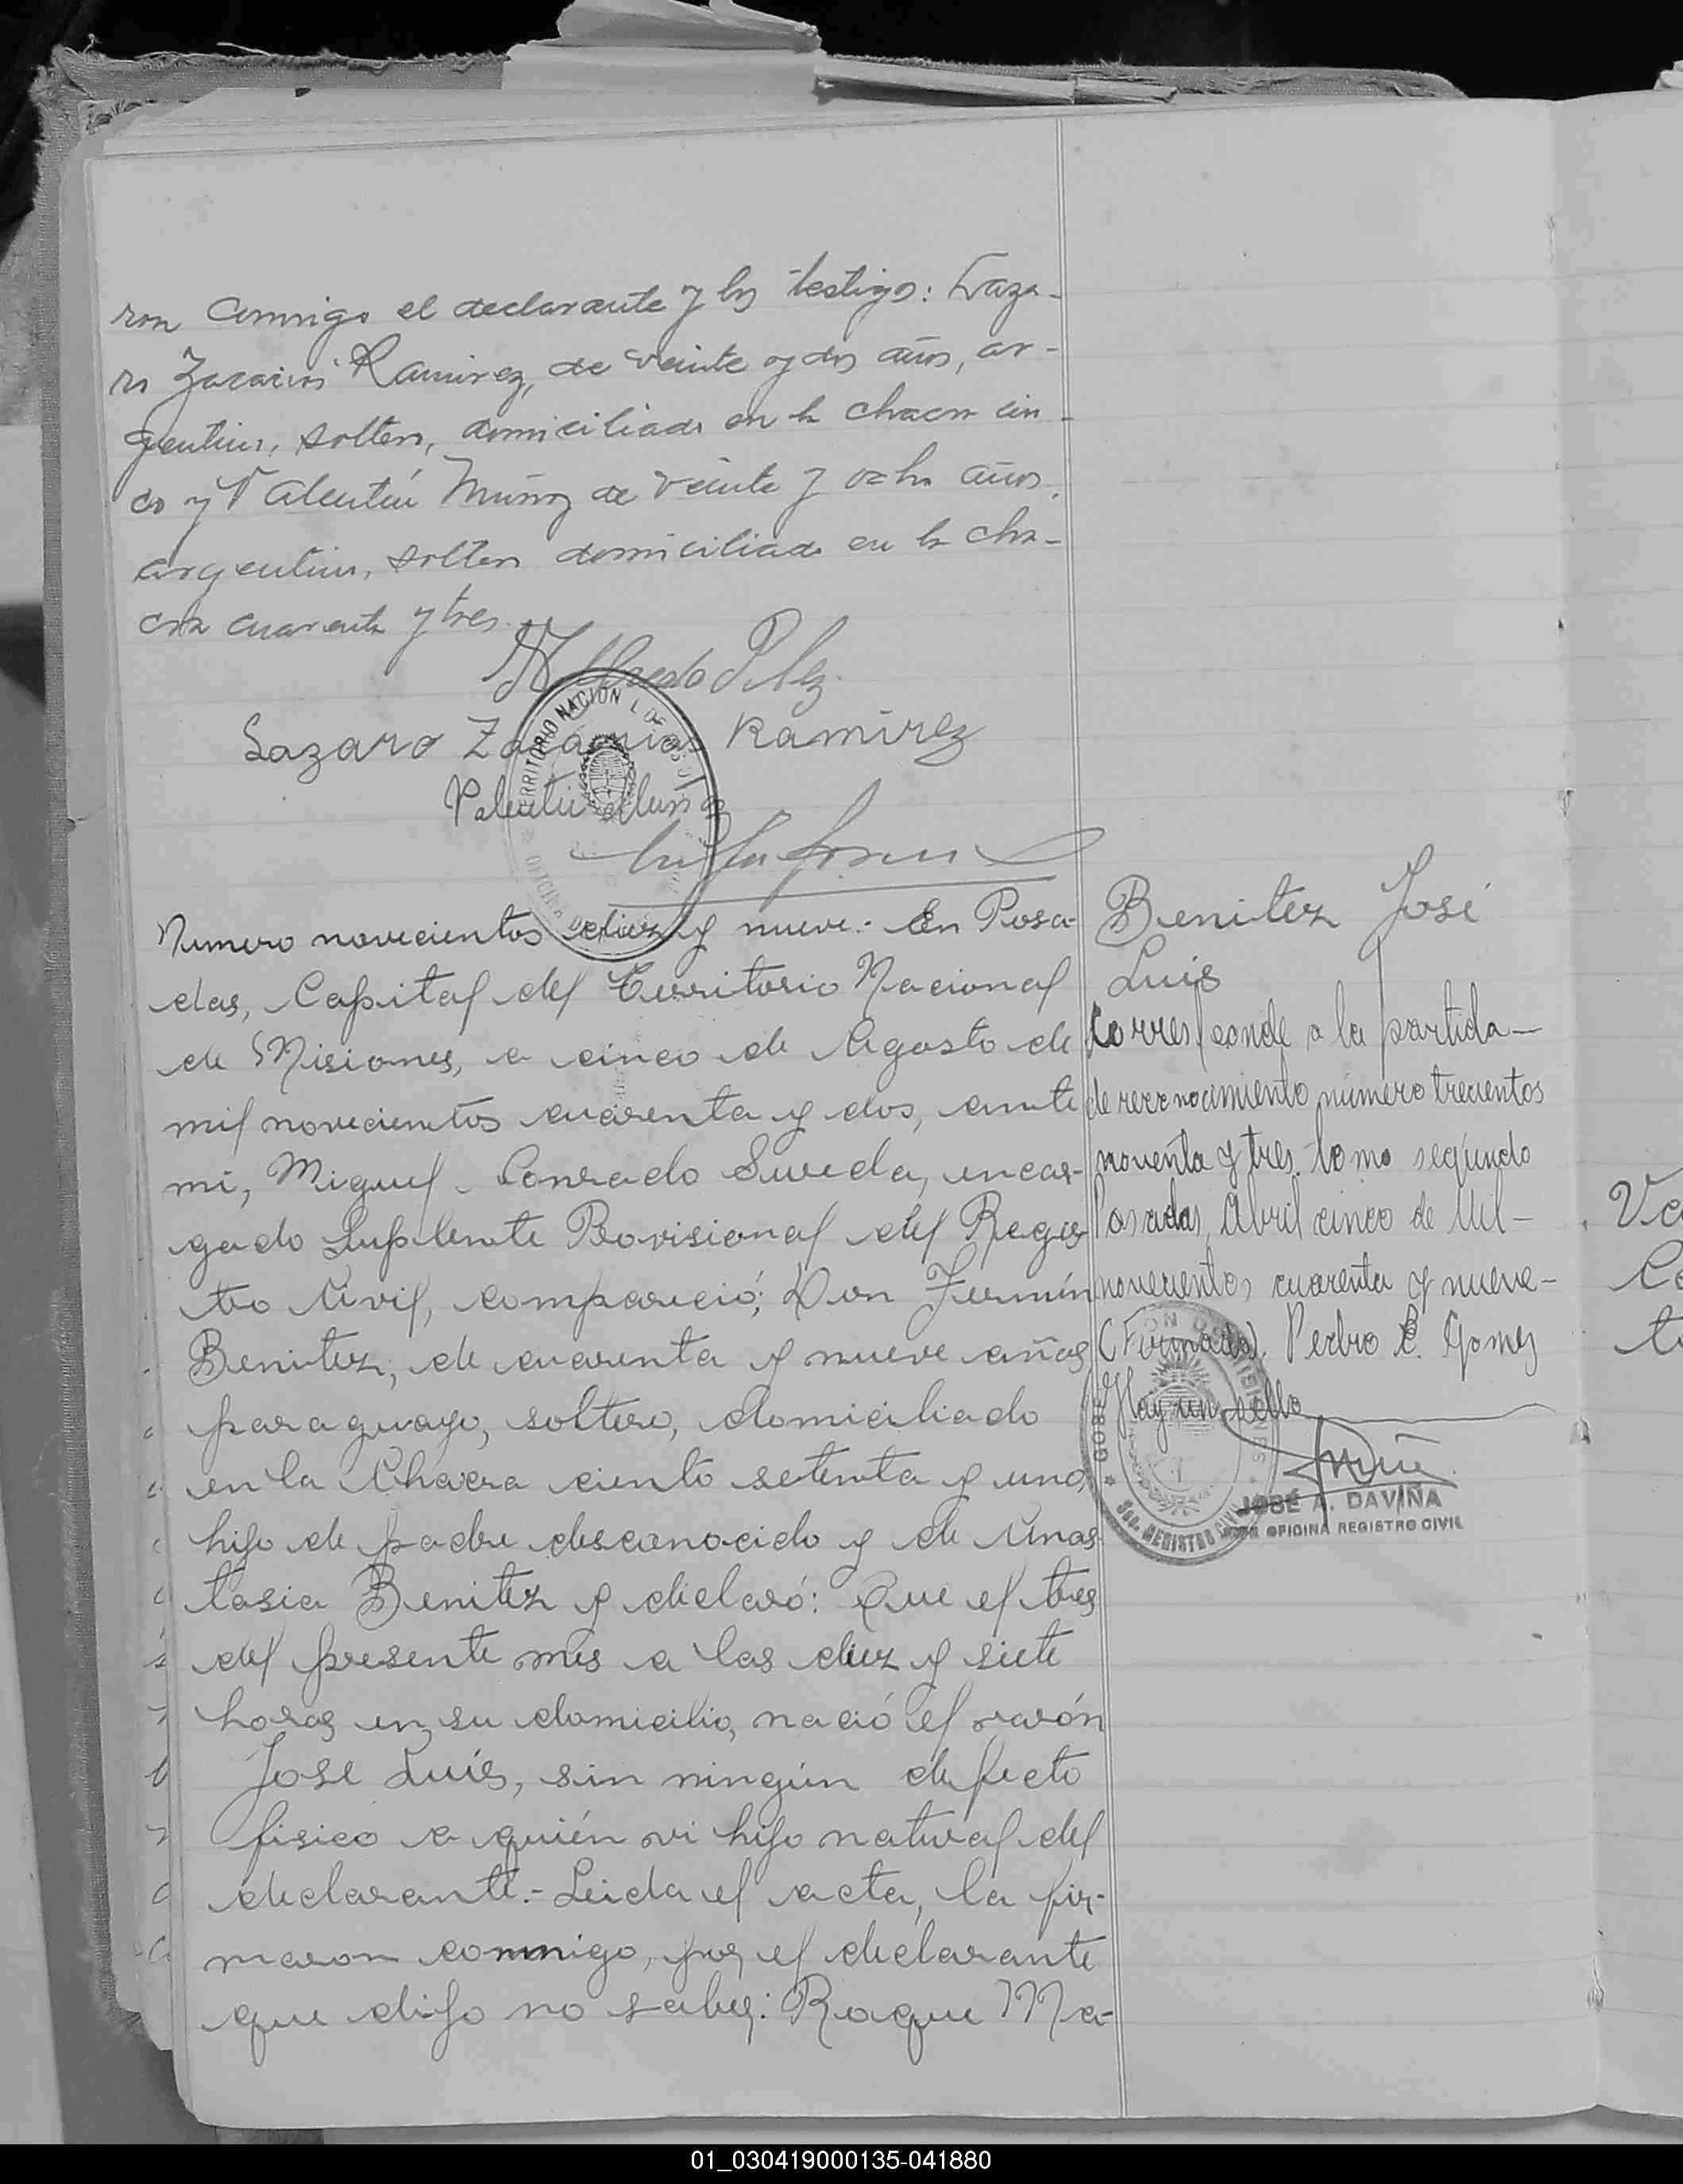 ron conmigo el declarante y los testigos: Laza-
ro Zacarias Ramirez, de veinte y dos años, ar-
gentino, soltero, domiciliado en la chacra cin-
co y Valentín Muñoz de veinte y ocho años,
argentino, soltero domiciliado en la cha-
cra cuarenta y tres.
Lazaro Zacárias Ramirez
Valentin Muñoz
TERRITORIO NACION L DE
Numero novecientos diez y nueve.- En Posa-
das, Capital del Territorio Nacional
de Misiones, a cinco de Agosto de
mil novecientos cuarenta y dos, ante
mi, Miguel Conrado Sureda, encar-
gado Suplente Provisional del Regis-
tro Civil, compareció; Don Fermín
Benitez, de cuarenta y nueve años
paraguayo, soltero, domiciliado
en la Chacra ciento setenta y uno,
hijo de padre desconocido y de Anas
tasia Benitez y declaró: Que el tres
del presente mes a las diez y siete
horas en su domicilio, nació el varón
Jose Luis, sin ningún defecto
fisico a quién vi hijo natural del
declarante.- Leida el acta, la fir-
maron conmigo, por el declarante
que dijo no saber: Roque Ma-
Benitez José
Luis
Corresponde a la partida-
de reconocimiento número trecientos
noventa y tres. tomo segundo
Posadas, Abril cinco de Mil-
novecientos cuarenta y nueve-
(Firmado). Pedro C. Gomez
Hay un sello
JOSÉ A. DAVIÑA
JEFE OFICINA REGISTRO CIVIL
01_030419000135-041880